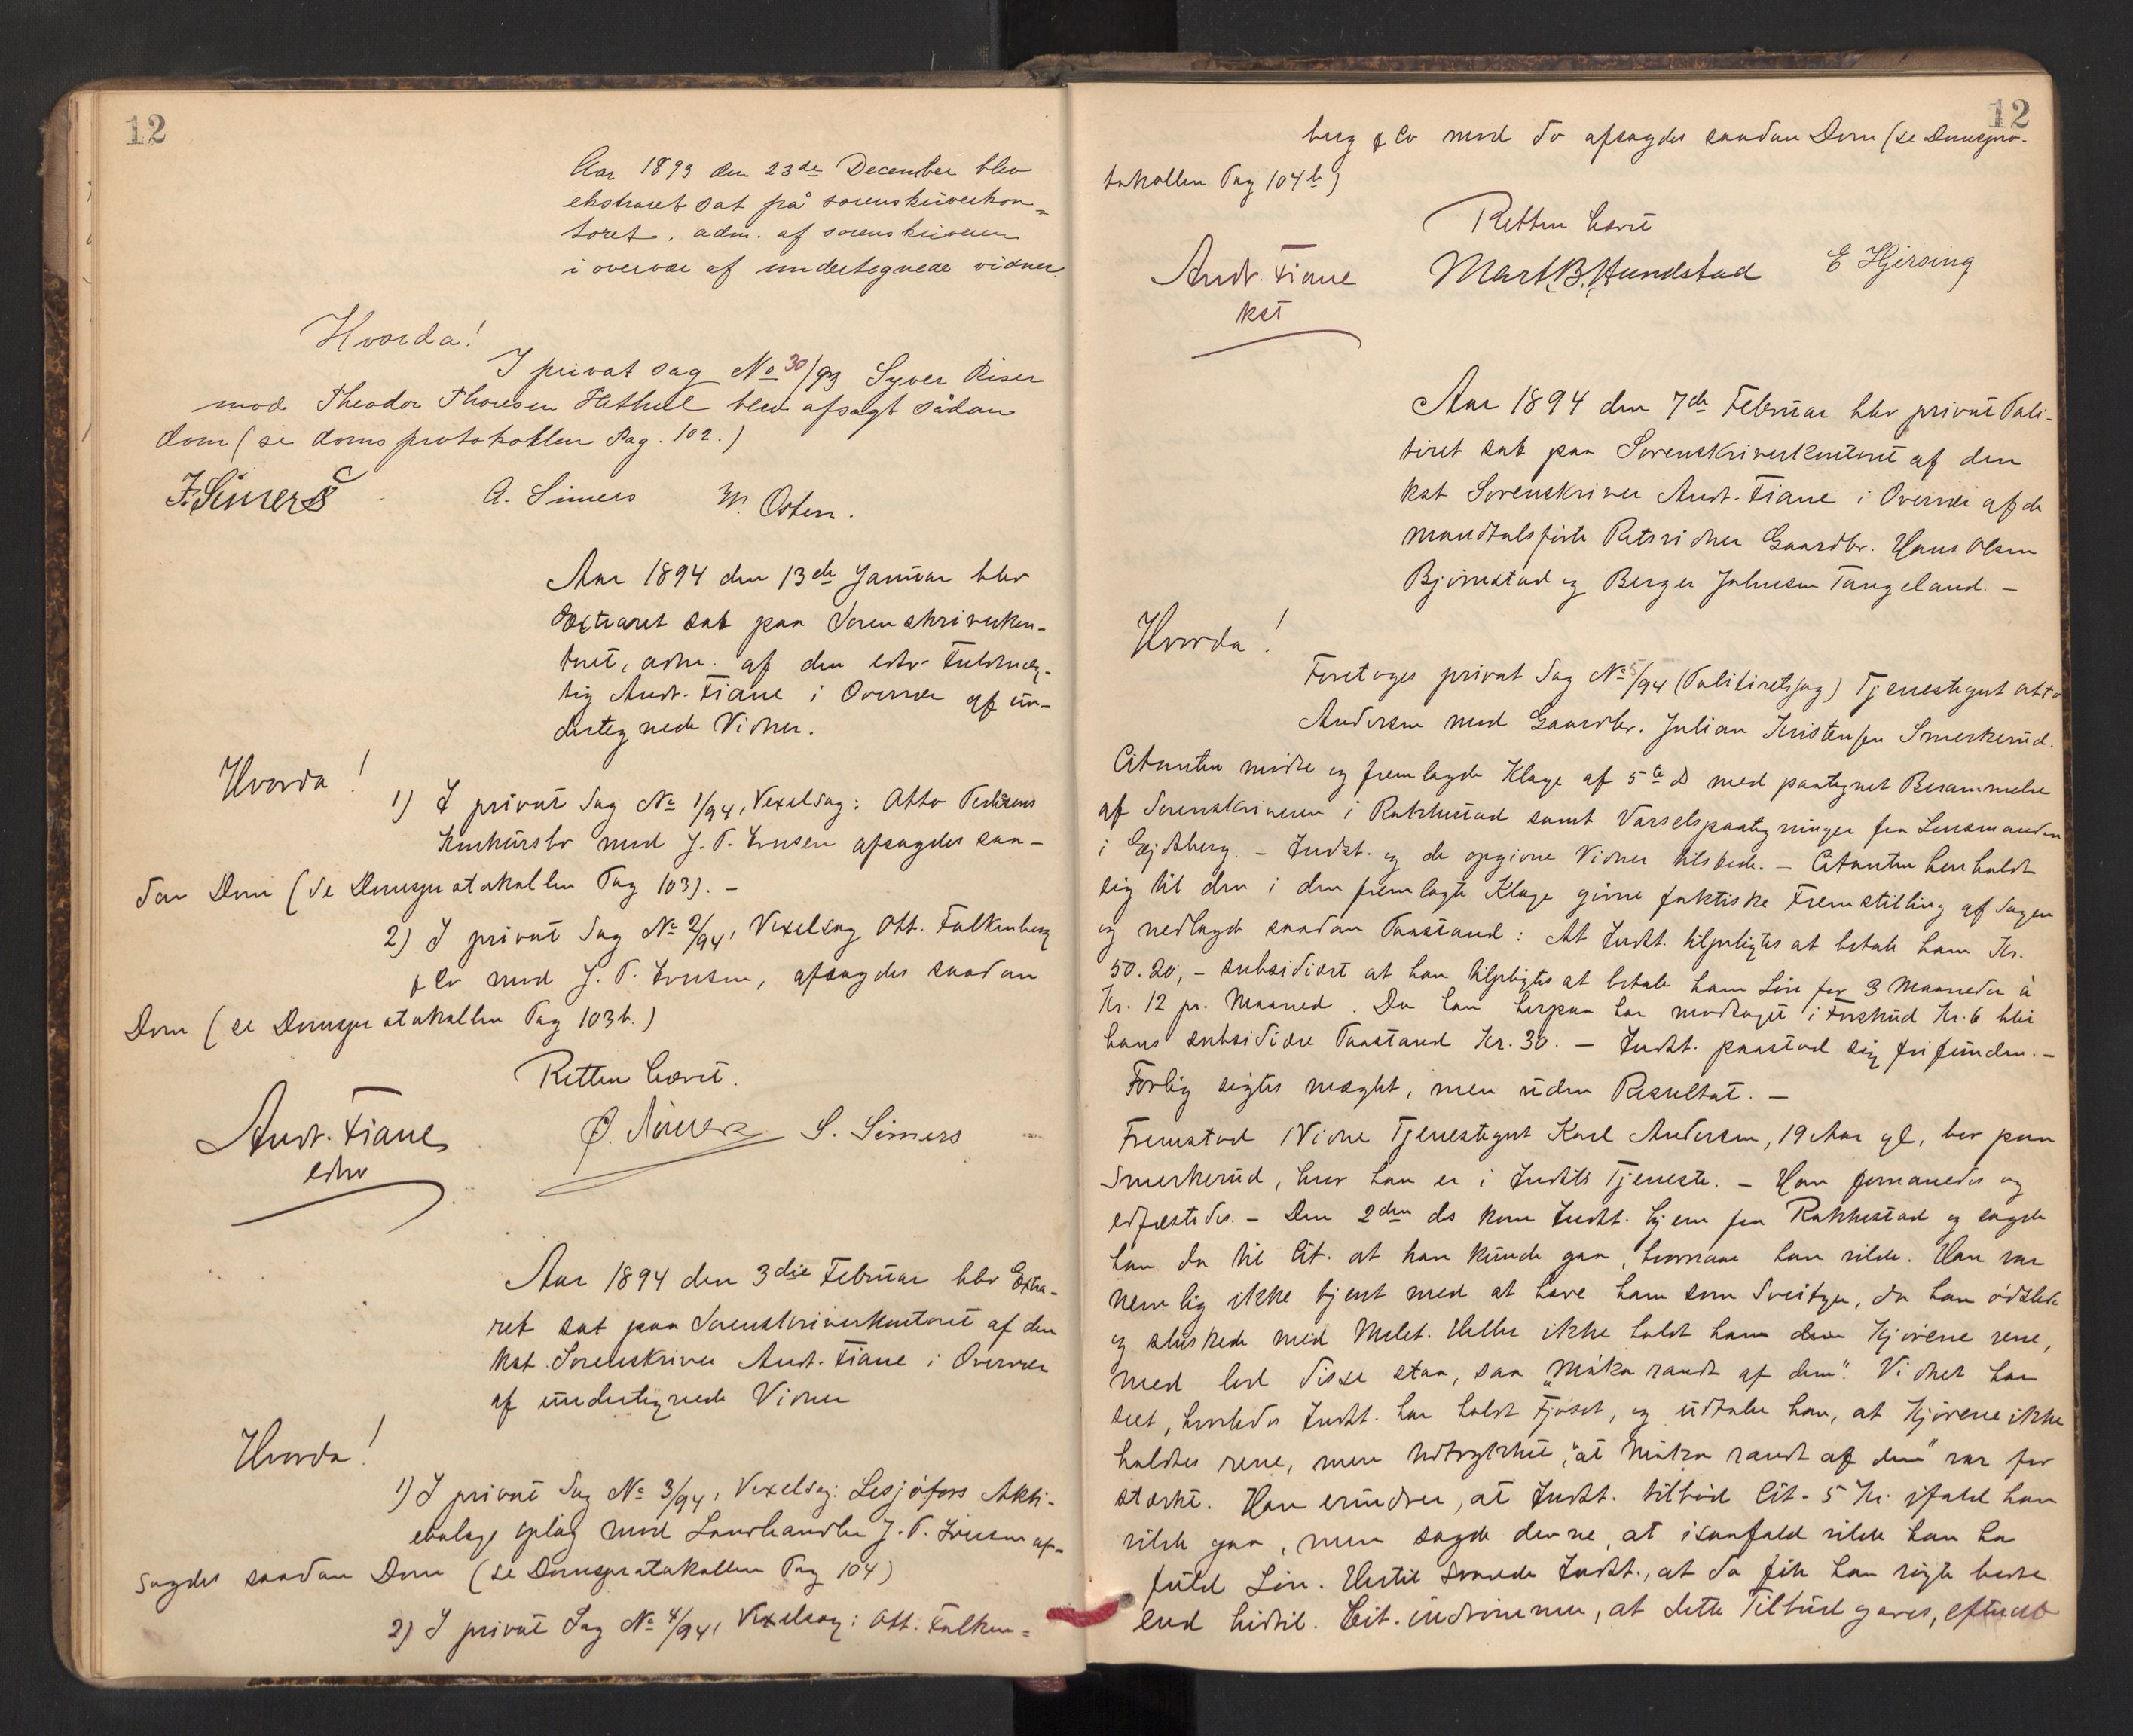 12
Aar 1893 den 23de December blev
ekstraret sat på sorenskriverkon=
toret, adm. af sorenskriveren
i overvær af undertegnede vidner.
Hvorda!
I privat sag No 30/93 Syver Riser
mod Theodor Thoresen Hethul blev afsagt sådan
dom (se domsprotokollen Pag. 102.)
F. Simers A. Simers M. Osten.
Aar 1894 den 13de Januar blev
Extraret sat paa Sorenskriverkon-
toret, adm. af den edsv. Fuldmæg-
tig Andr. Fiane i Overvær af un-
dertegnede Vidner.
Hvorda!
1) I privat Sag No 1/94, Vexelsag: Otto
Konkursbo mod J. P. afsagdes saa-
dan Dom (Se Domsprotokollen Pag 103). -
2) I privat Sag No 2/94, Vexelsag Ott. Falkenberg
& Co mod J. P. afsagdes saadan
Dom (se Domsprotokollen Pag 103b.)
Retten hævet.
Andr. Fiane S. Simers
edsv
Aar 1894 den 3die Februar blev Extra-
ret sat paa Sorenskriverkontoret af den
kst. Sorenskriver Andr. Fiane i Overvær
af undertegnede Vidner
Hvorda!
1) I privat Sag No 3/94, Vexelsag: Lesjöfors Akti-
ebolags oplag mod Landhandler J. P. af-
sagdes saadan Dom (se Domsprotokollen Pag 104)
2) I privat Sag No 4/94, Vexelsag: Ott. Falken=
12
berg & Co mod do afsagdes saadan Dom (se Domspro-
tokollen Pag 104b)
Retten hævet
Andr. Fiane Mart. B. Hundstad E Hjersing
kst
Aar 1894 den 7de Februar blev privat Poli-
tiret sat paa Sorenskriverkontoret af den
kst Sorenskriver Andr. Fiane i Overvær af de
mandtalsførte Retsvidner Gaardbr. Hans Olsen
Bjørnstad og Berger Johnsen Tangeland. -
Hvorda!
Foretoges privat Sag No 5/94 (Politiretssag) Tjenestegut Otto
Andersen mod Gaardbr. Julian Kristensen Smerkerud.
Citanten mødte og fremlagde Klage af 5te ds med paategnet Berammelse
af Sorenskriveren i Rakkestad samt Varselspaategninger fra Lensmanden
i Eidsberg. - Indst. og de opgivne Vidner tilstede. - Citanten henholdt
sig til den i den fremlagte Klage givne faktiske Fremstilling af Sagen
og nedlagde saadan Paastand: At Indst. tilpligtes at betale ham Kr.
50.20, - subsidiært at han tilpligtes at betale ham Løn for 3 Maaneder à
Kr. 12 pr. Maaned. Da han herpaa har modtaget i Forskud Kr. 6 blir
hans subsidiære Paastand Kr. 30. - Indst. paastod sig frifunden. -
Forlig søgtes mæglet, men uden Resultat. -
Fremstod 1 Vidne Tjenestegut Karl Andersen, 19 Aar gl, bor paa
Smerkerud, hvor han er i Indsts Tjeneste. - Han formanedes og
edfæstedes. - Den 2den ds kom Indst. hjem fra Rakkestad og sagde
han da til Cit. at han kunde gaa, hvornaar han vilde. Han var
nemlig ikke tjent med at have ham som Sveitzer, da han ødslede
og sluskede med Melet. Heller ikke holdt han Kjørene rene,
med lod disse staa, saa „Møka randt af dem". Vidnet har
seet, hvorledes Indst. har holdt Fjøset, og udtaler han, at Kjørene ikke
holdtes rene, men Udtrykket, „at Møka randt af dem" var for
stærkt. Han erindrer, at Indst. tilbød Cit. 5 Kr. ifald han
vilde gaa, men sagde denne, at isaafald vilde han ha
fuld Løn. Hertil svarede Indst., at da fik han røgte bedre
end hidtil. Cit. indrømmer, at dette Tilbud gaves, efterat